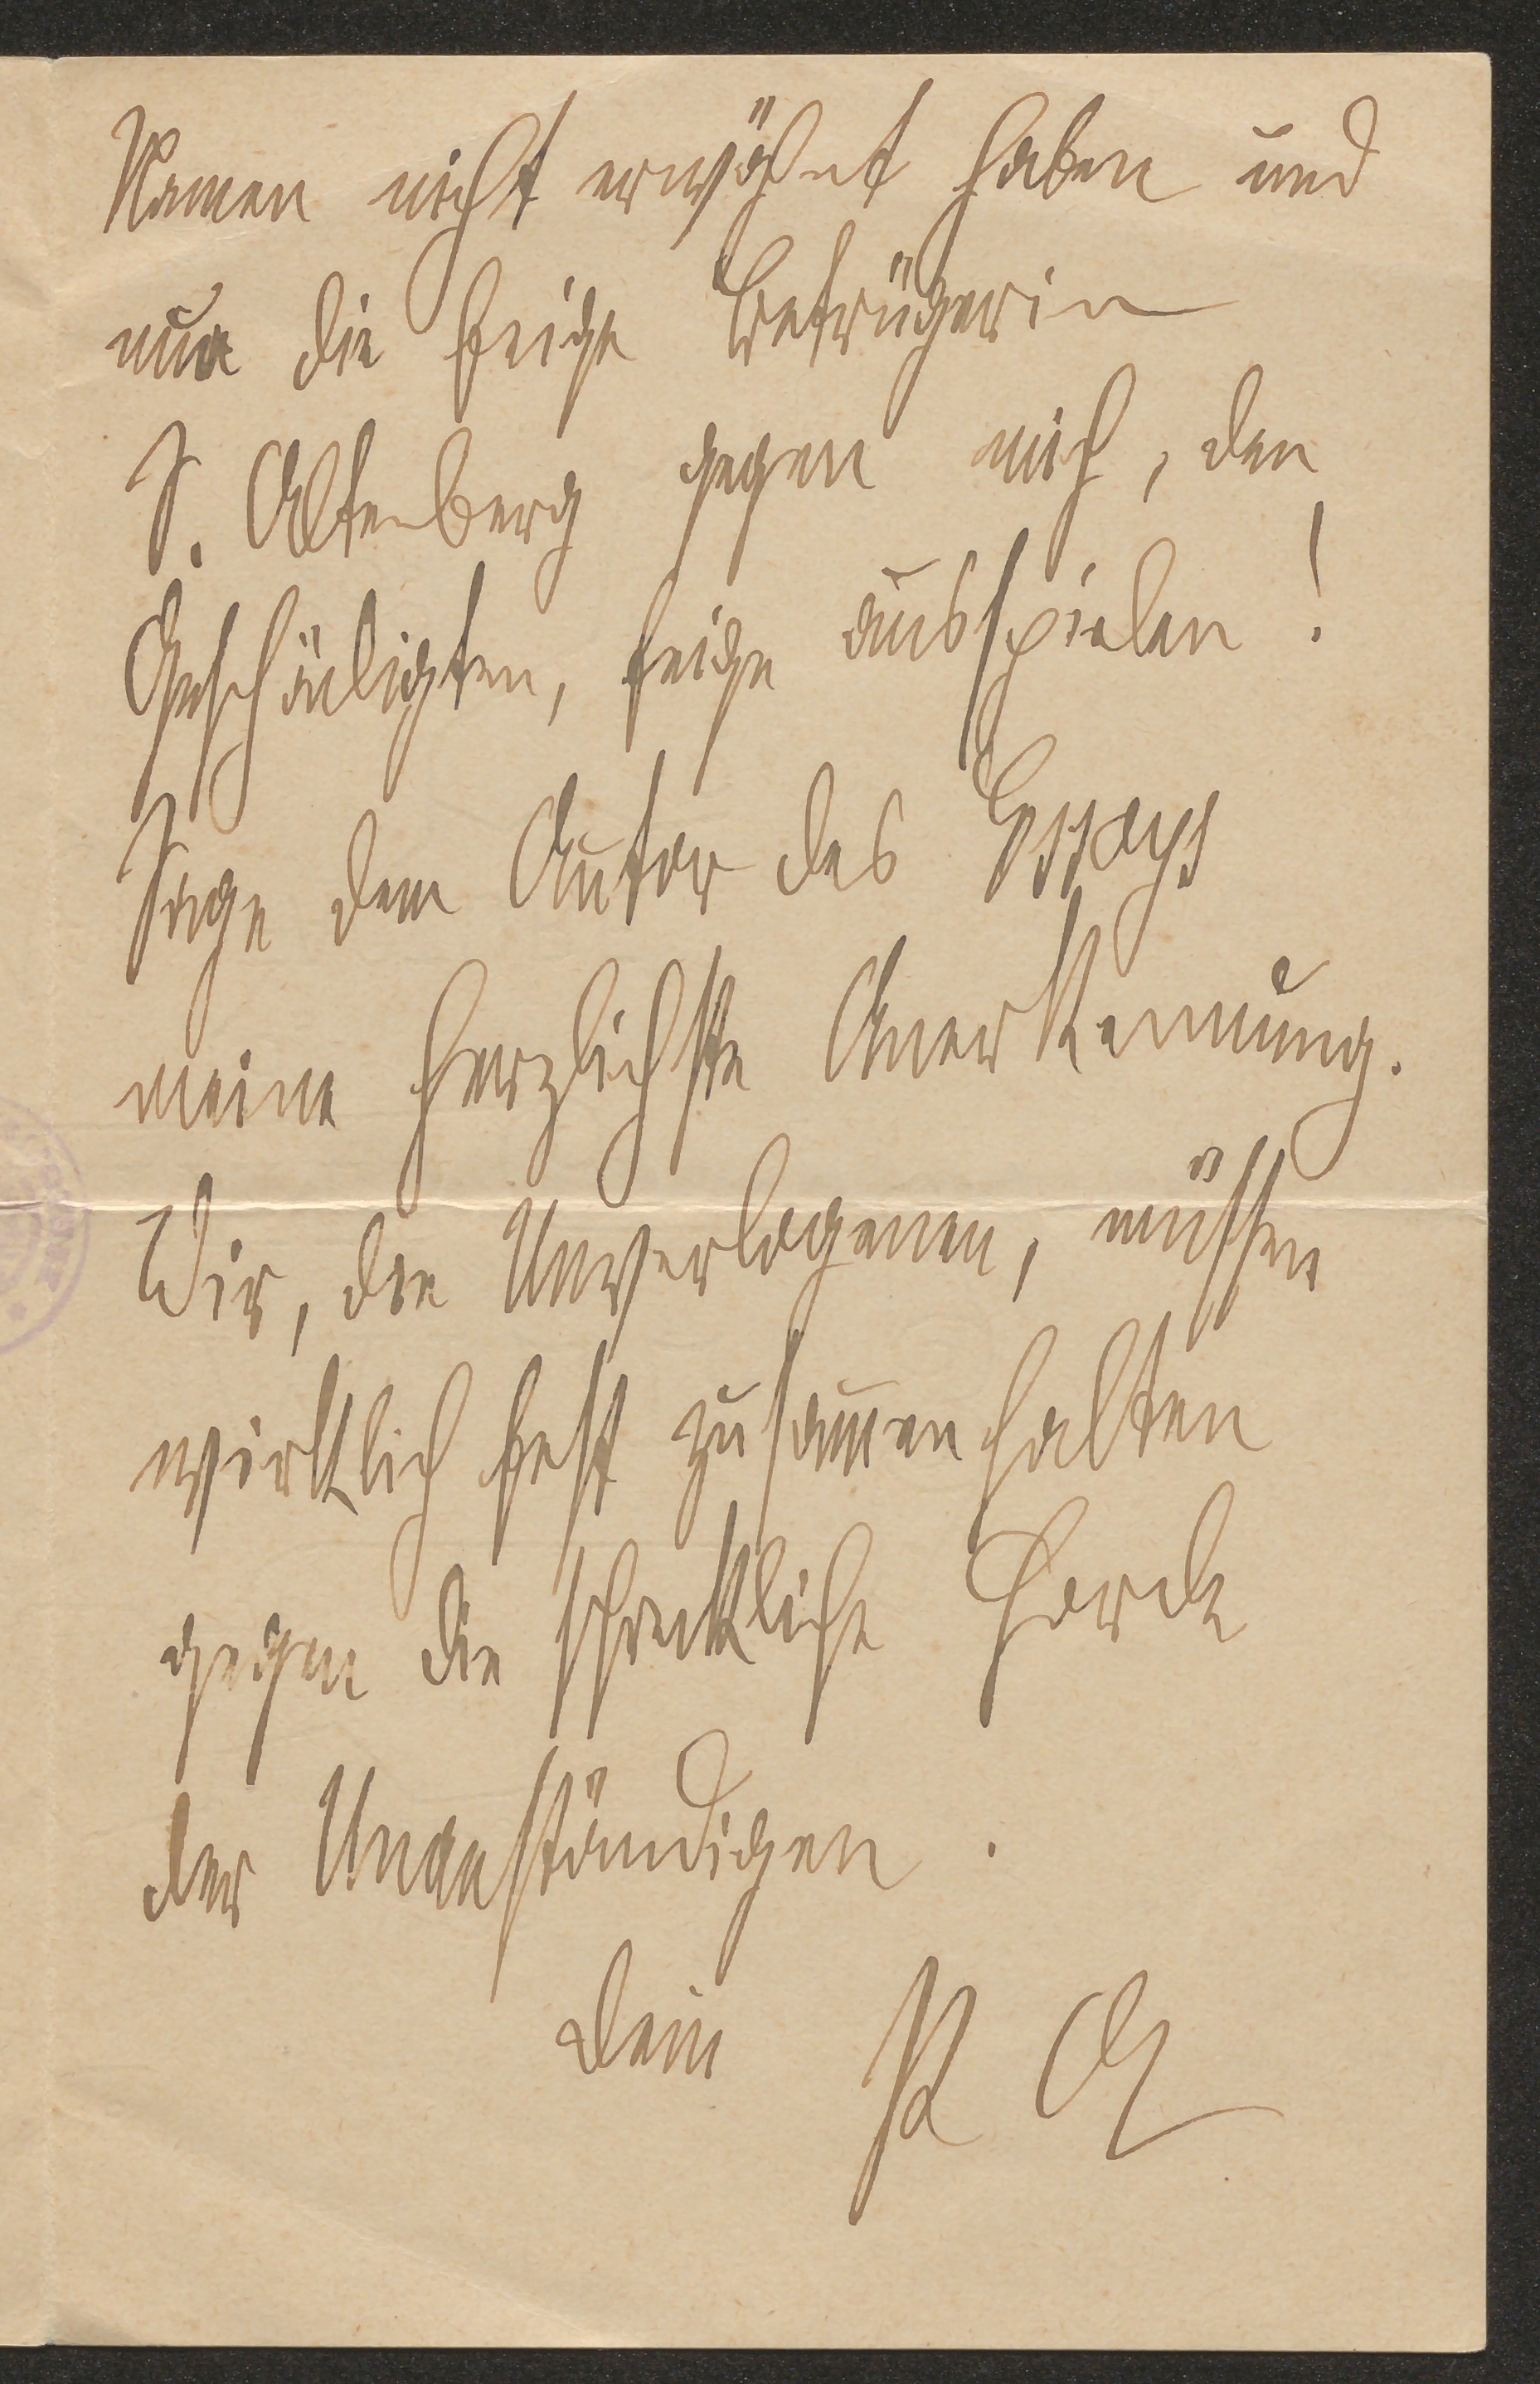 Namen nicht erwähnt haben und
nur die feige Betrügerin
J. Altenberg gegen mich, den
Geschädigten, feige ausspielen!
Sage dem Autor des Essays
meine herzlichste Anerkennung.
Wir, die Unverlogenen, müssen
wirklich fest zusammenhalten
gegen die schreckliche Horde
der Unanständigen.
Dein PA